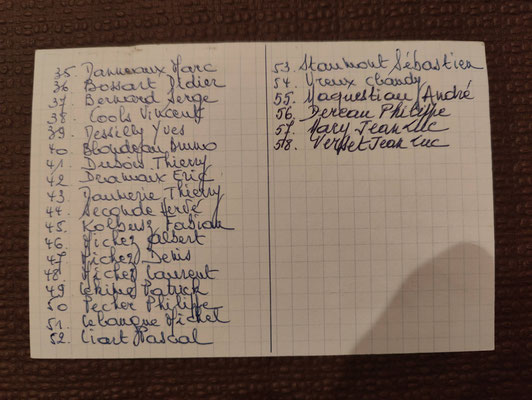 35. Dannevaux Marc
36 Bossart Didier
37 Bernard Serge
38 Cools Vincent
39. Tessilly Yves
40. Blondeau Bruno
41. Dubois Thierry
42. Deramaix Eric
43. Thierry
44. Seconde Hervé
45. Fabian
46. Michez Albert
47. Michez Denis
48. Michez Laurent
49 Patrick
50 Pecher Philippe
51. Lebangue Michel
52. Liart Pascal
53. Staumont Sébastien
54. Vreux Chandy
55. Maquestiau André
56. Dereau Philippe
57. Mary Jean Luc
58. Verset Jean Luc